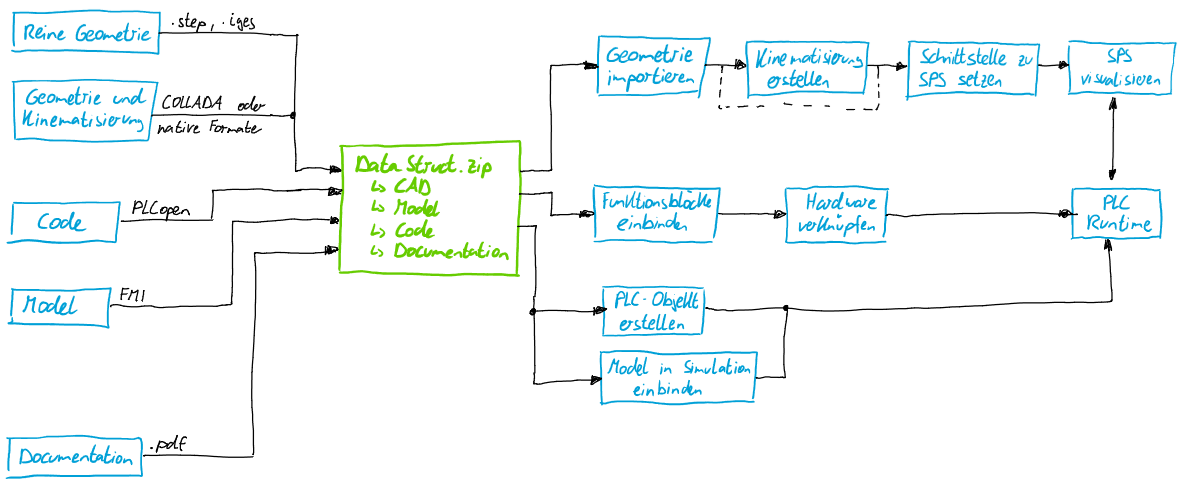 Reine Geometrie
.step, .iges
Geometrie und
Kinematisierung
COLLADA oder
native Formate
Code
PLCopen
Model
FMI
Documentation
.pdf
Data Struct.zip
↳ CAD
↳ Model
↳ Code
↳ Documentation
Geometrie
importieren
Kinematisierung
erstellen
Schnittstelle zu
SPS setzen
SPS
visualisieren
Funktionsblöcke
einbinden
Hardware
verknüpfen
PLC
Runtime
PLC-Objekt
erstellen
Model in Simulation
einbinden